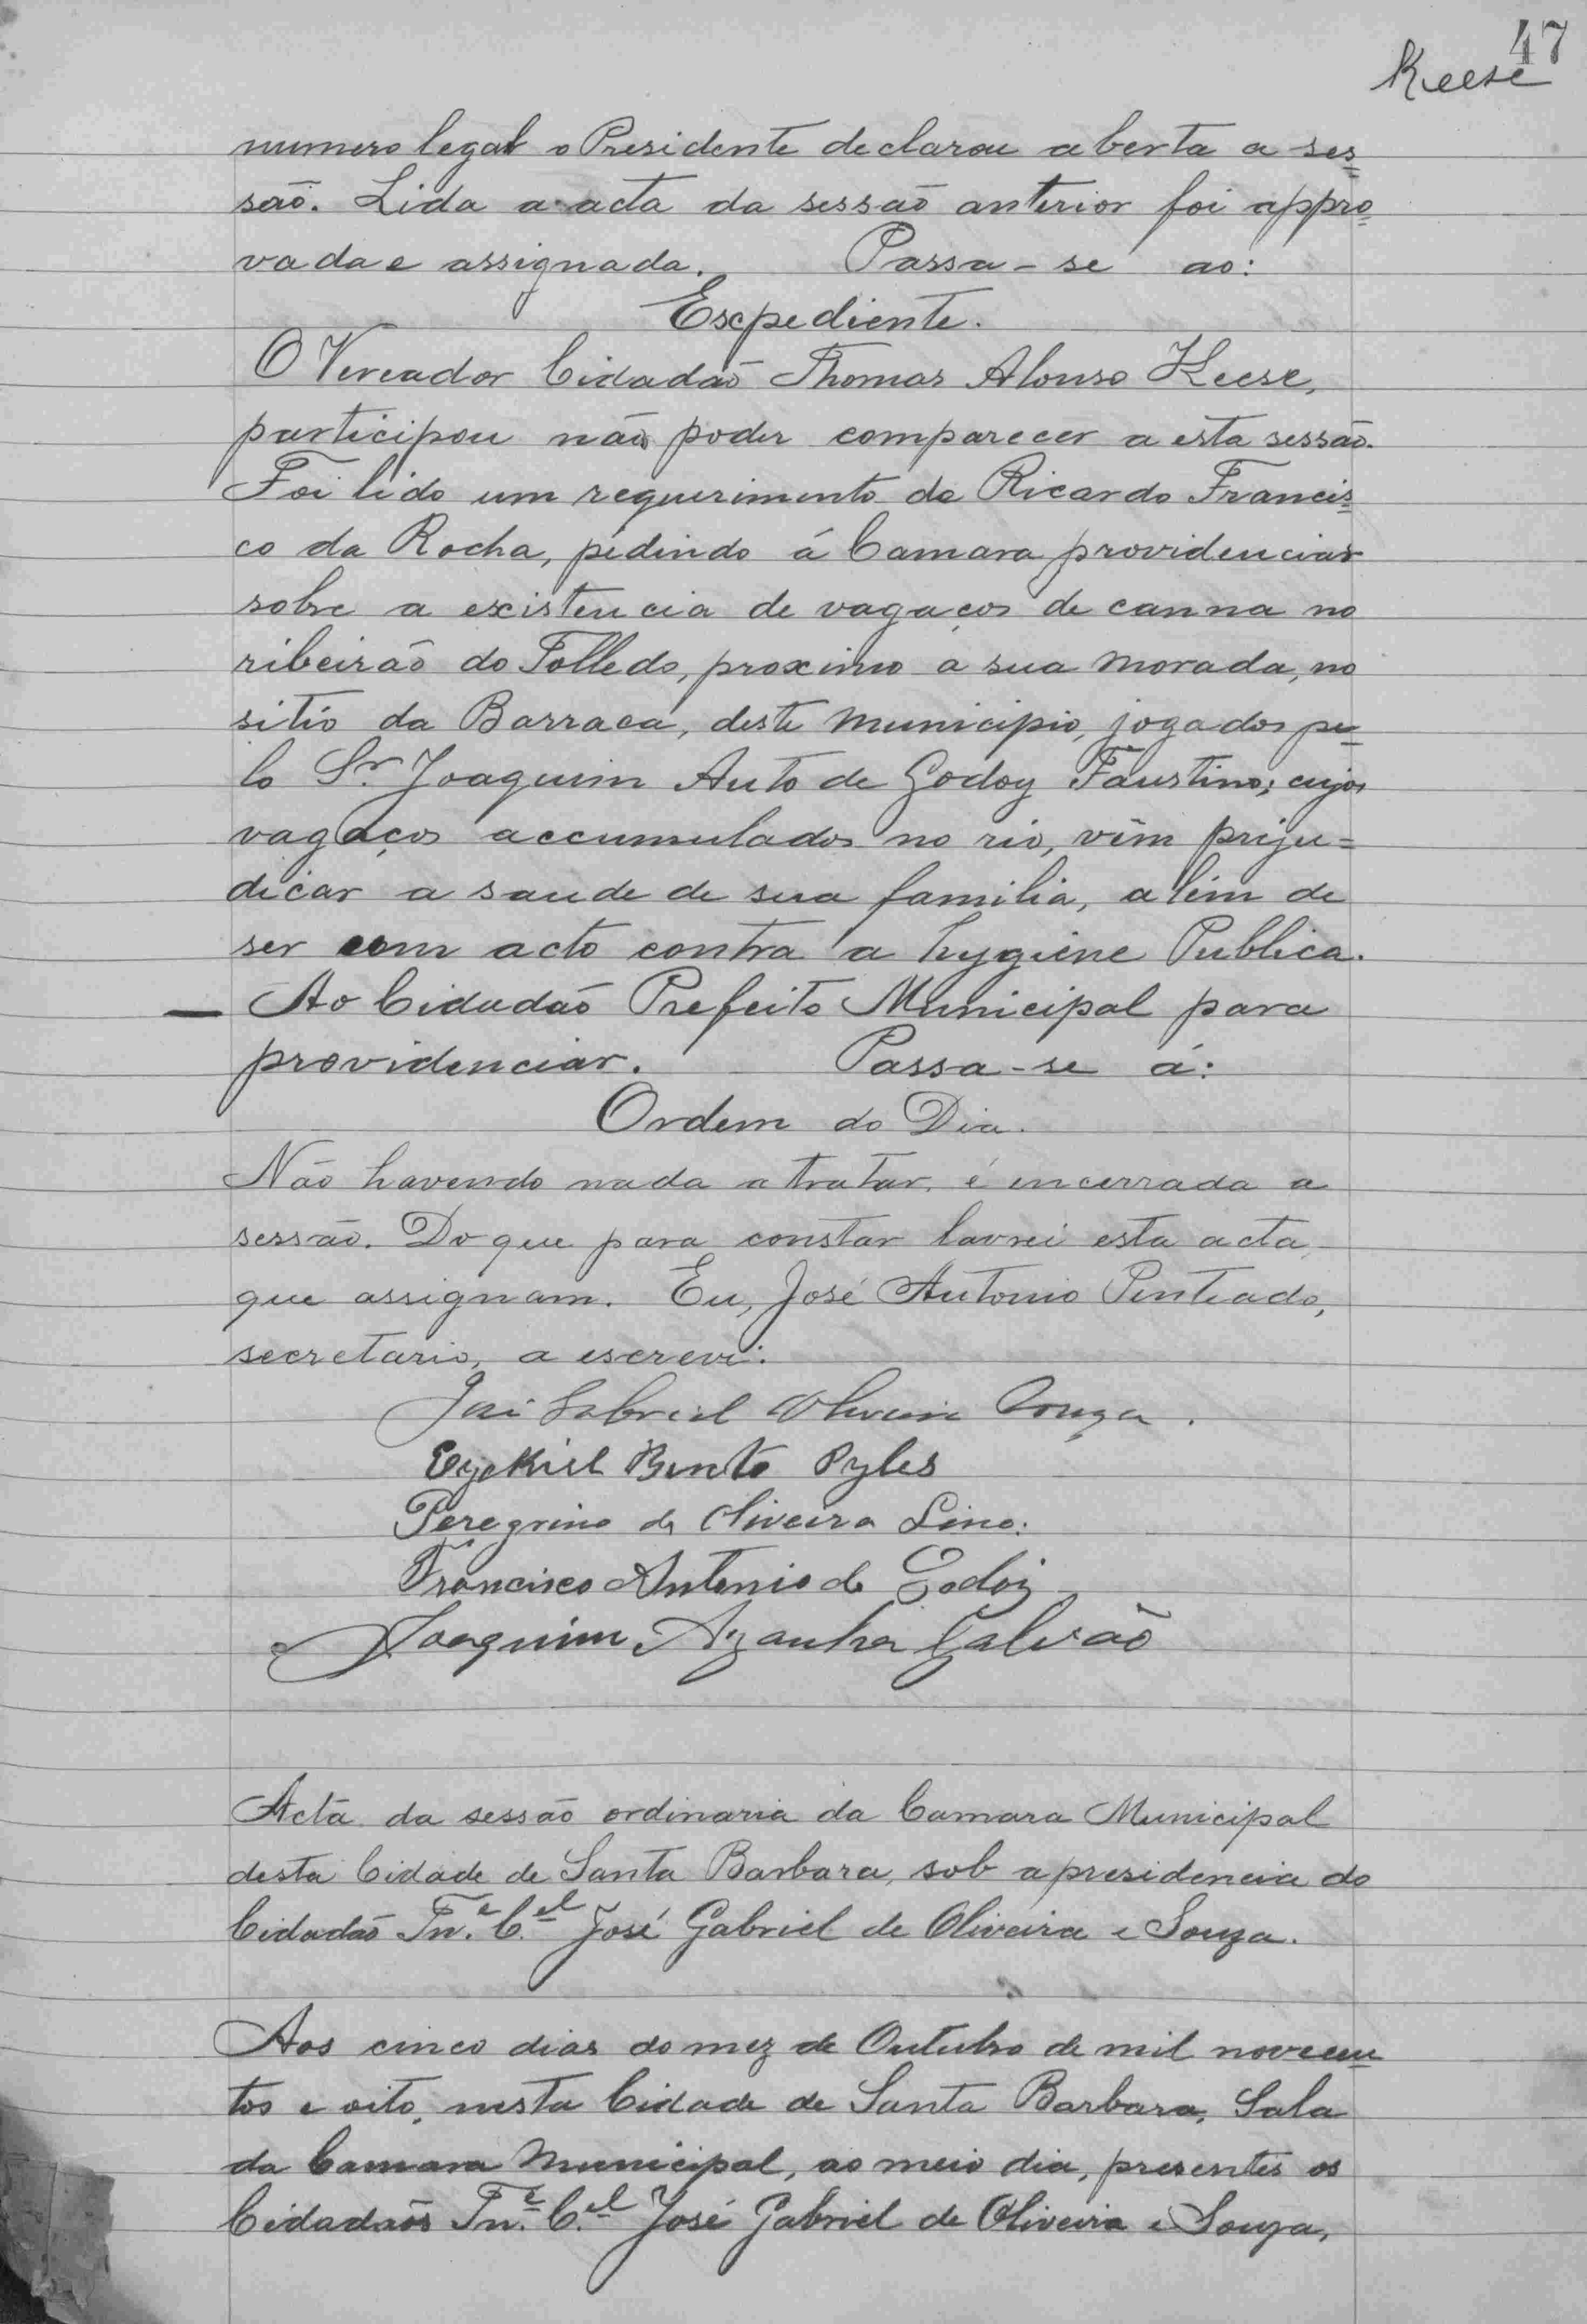 47
Keese
numero legal o Presidente declarou aberta a ses=
são. Lida a acta da sessão anterior foi appro=
vada e assignada. Passa-se ao:
Expediente.
O Vereador Cidadão Thomas Alonso Keese,
participou não poder comparecer a esta sessão.
Foi lido um requerimento de Ricardo Francis=
co da Rocha, pedindo á Camara providenciar
sobre a existencia de vagaços de canna no
ribeirão do Tolledo, proximo a sua morada, no
sitio da Barraca, deste Municipio, jogados pe=
lo Sr. Joaquim Auto de Godoy Faustino; cujos
vagaços accumulados no rio, vêm preju=
dicar a saude de sua familia, além de
ser um acto contra a hygiene Publica.
— Ao Cidadão Prefeito Municipal para
providenciar. Passa-se á:
Ordem do Dia.
Não havendo nada a tratar, é encerrada a
sessão. Do que para constar lavrei esta acta
que assignam. Eu, José Antonio Penteado,
secretario, a escrevi.
José Gabriel Oliveira Souza.
Ezekiel Bento Pyles
Peregrino de Oliveira Lino.
Francisco Antonio de Godoi
Joaquim Azanha Galvão
Acta da sessão ordinaria da Camara Municipal
desta Cidade de Santa Barbara, sob a presidencia do
Cidadão Tn.e C.el José Gabriel de Oliveira e Souza.
Aos cinco dias do mez de Outubro de mil novecen=
tos e oito, nesta Cidade de Santa Barbara, Sala
da Camara Municipal, ao meio dia, presentes os
Cidadãos Tn.e C.el José Gabriel de Oliveira e Souza,